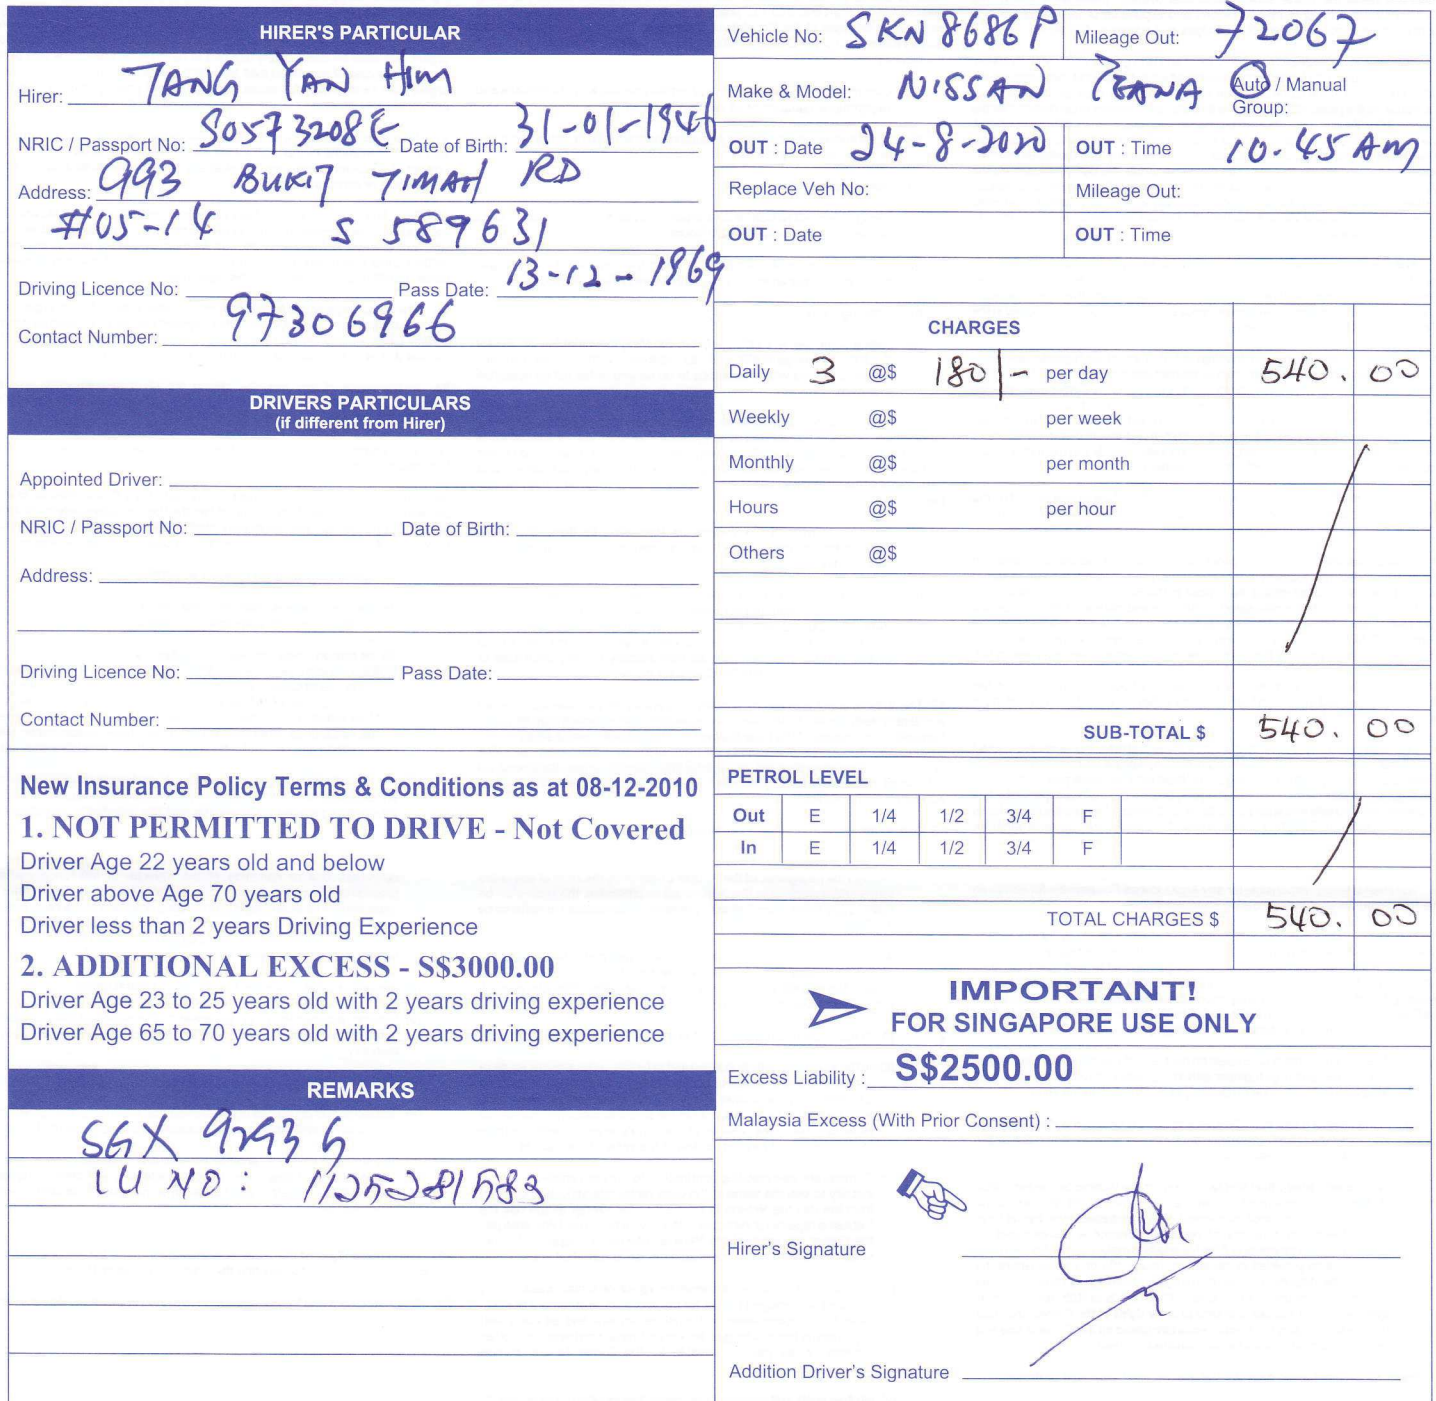 HIRER'S PARTICULAR
Hirer: TANG YAN HIM
NRIC / Passport No: S0573208E Date of Birth: 31-01-1946
Address: 993 BUKIT TIMAH RD
#05-14 S 589631
Driving Licence No: Pass Date: 13-12-1969
Contact Number: 97306966
DRIVERS PARTICULARS
(if different from Hirer)
Appointed Driver:
NRIC / Passport No: Date of Birth:
Address:
Driving Licence No: Pass Date:
Contact Number:
New Insurance Policy Terms & Conditions as at 08-12-2010
1. NOT PERMITTED TO DRIVE - Not Covered
Driver Age 22 years old and below
Driver above Age 70 years old
Driver less than 2 years Driving Experience
2. ADDITIONAL EXCESS - S$3000.00
Driver Age 23 to 25 years old with 2 years driving experience
Driver Age 65 to 70 years old with 2 years driving experience
REMARKS
SGX 9293 G
IU NO: 1125281583
Vehicle No: SKN 8686P Mileage Out: 72067
Make & Model: NISSAN TEANA Auto / Manual
Group:
OUT : Date 24-8-2020 OUT : Time 10.45 AM
Replace Veh No: Mileage Out:
OUT : Date OUT : Time
CHARGES
Daily 3 @$ 180/- per day 540.00
Weekly @$ per week
Monthly @$ per month
Hours @$ per hour
Others @$
SUB-TOTAL $ 540.00
PETROL LEVEL
Out E 1/4 1/2 3/4 F
In E 1/4 1/2 3/4 F
TOTAL CHARGES $ 540.00
IMPORTANT!
FOR SINGAPORE USE ONLY
Excess Liability : S$2500.00
Malaysia Excess (With Prior Consent) :
Hirer's Signature
Addition Driver's Signature